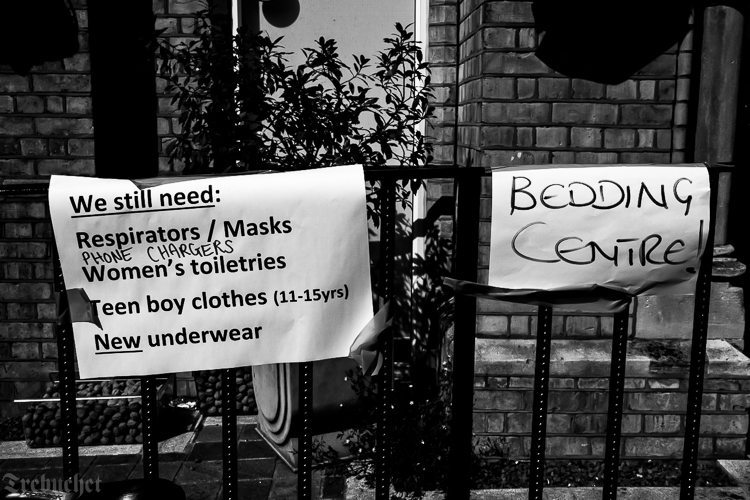 We still need:
Respirators / Masks
PHONE CHARGERS
Women's toiletries
Teen boy clothes (11-15yrs)
New underwear
BEDDING
CENTRE!
Trebuchet